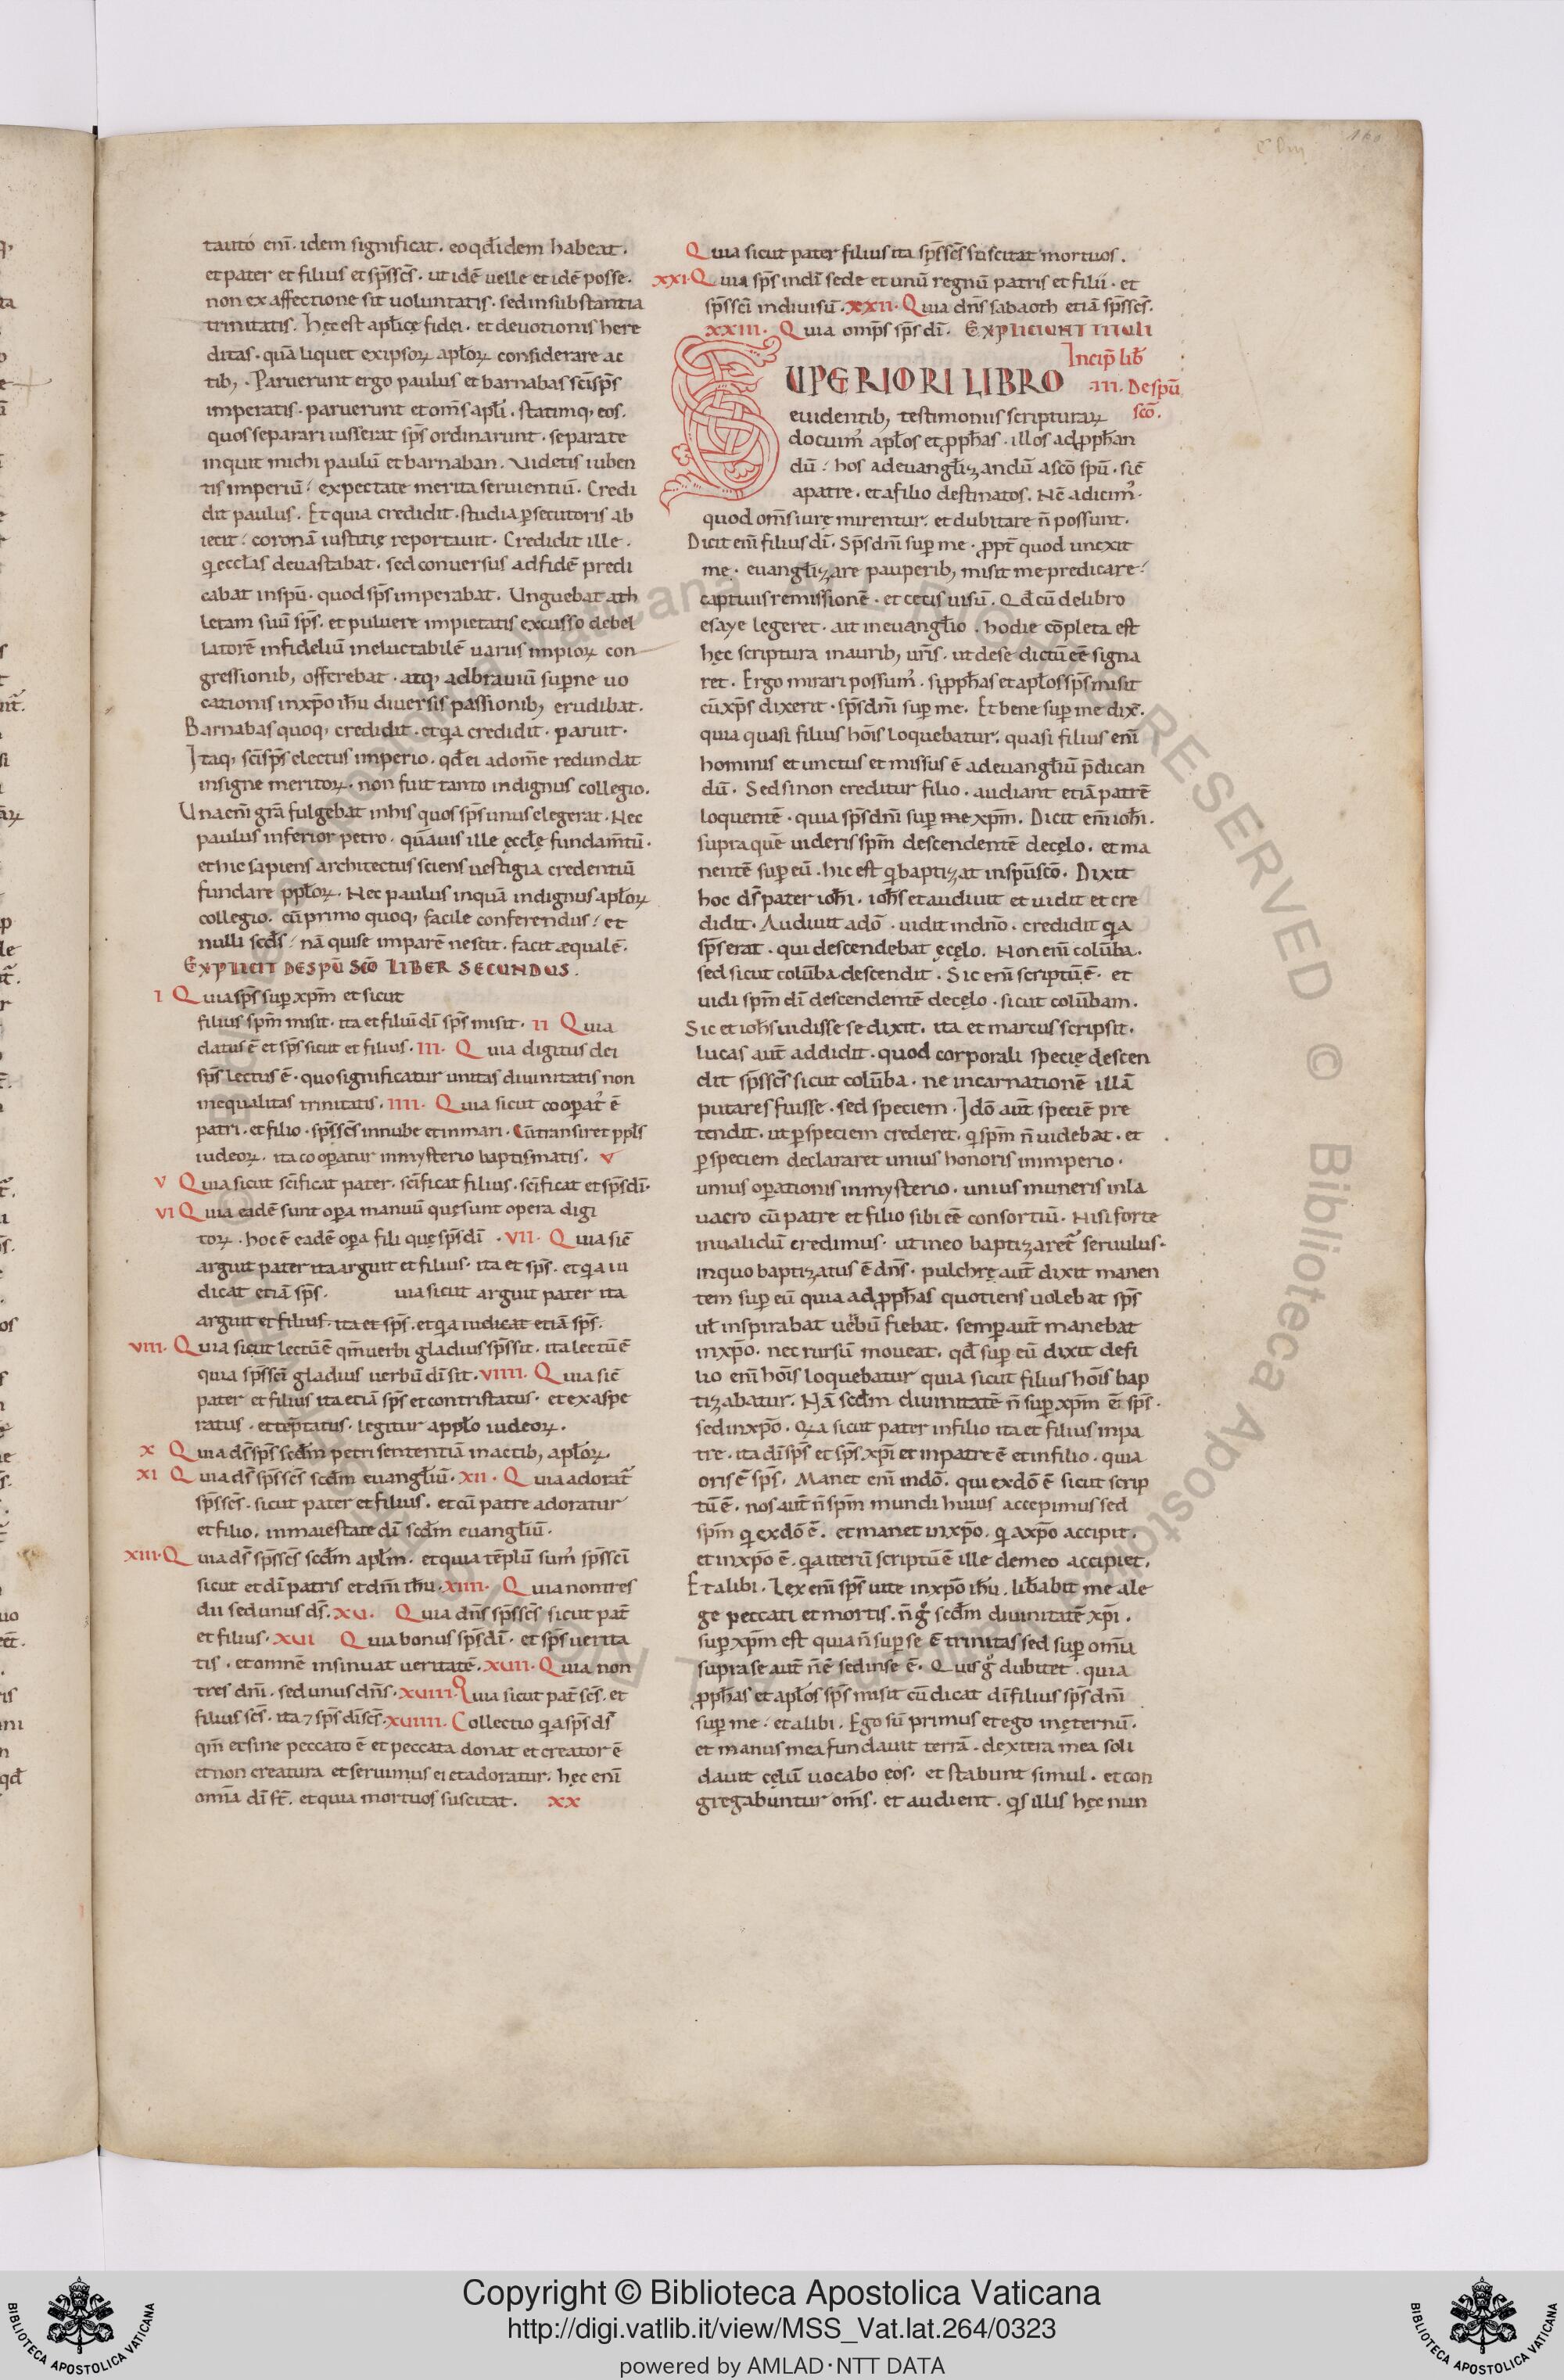 tautó enī · idem significat · eo qđ idem habeat ·
et pater et filius et sp̄s sc̄s · ut idē uelle et idē posse ·
non ex affectione sit uoluntatis · sed in substantia
trinitatis . hęc est apl̄icę fidei · et deuotionis here
ditas · quā liquet ex ipsoꝝ apl̄oꝝ considerare ac
tib; . Paruerunt ergo paulus et barnabas sc̄i sp̄s
imperatis · paruerunt et om̄s apl̄i . statimq; eos ·
quos separari iusserat sp̄s ordinarunt · separate
inquit michi paulū et barnaban . Videtis iuben
tis imperiū · expectate merita seruientiū . Credi
dit paulus . Et quia credidit · studia ꝑsecutoris ab
iecit · coronā iustitię reportauit . Credidit ille .
qi eccl̄as deuastabat · sed conuersus ad fidē predi
cabat in spū · quod sp̄s imperabat . Unguebat ath
letam suū sp̄s · et puluere impietatis excusso debel
latorē infideliū ineluctabilē uariis impioꝝ con
gressionib; offerebat · atq; ad brauiū supꝑne uo
cationis in xp̄o ih̄u diuersis passionib; erudibat .
Barnabas quoq; credidit · et qa credidit · paruit ·
Itaq; sc̄i sp̄s electus imperio · qđ ei adom̄e redundat
insigne meritoꝝ · non fuit tanto indignus collegio .
Una enī grā fulgebat in his quos sp̄s unus elegerat · Nec
paulus inferior petro · quāuis ille ęccl̄ę fundam̄tū ·
et hic sapiens architectus sciens uestigia credentiū
fundare ppl̄oꝝ . Nec paulus inquā indignus apl̄oꝝ
collegio · cū primo quoq; facile conferendus · et
nulli scđs · nā qui se imparē nescit · facit æqualē ·
EXPLICIT DE SPŪ SC̄O LIBER SECUNDUS .
I Quia sp̄s sup xp̄m et sicut
filius sp̄m misit · ita et filiū dī sp̄s misit · II Quia
datus ē et sp̄s sicut et filius · III · Quia digitus dei
sp̄s lectus ē · quo significatur unitas diuinitatis non
inequalitas trinitatis . IIII · Quia sicut coopaꝉ ē
patri · et filio · sp̄s sc̄s in nube et in mari · Cū transiret ppl̄s
iudeoꝝ · ita cooperatur in mysterio baptismatis · V
V Quia sicut sc̄ificat pater · sc̄ificat filius · sc̄ificat et sp̄s dī ·
VI Quia eadē sunt opa manuū quę sunt opera digi
toꝝ · hoc ē eadē opa fili quę sp̄s dī · VII · Quia sic̄
arguit pater ita arguit et filius · ita et sp̄s · et qa iu
dicat etiā sp̄s . uia sicut arguit pater ita
arguit et filius · ita et sp̄s . et qa iudicat etiā sp̄s .
VIII · Quia sicut lectū ē qm̄ uerbi gladius sp̄s sit · ita lectū ē
quia sp̄s sc̄i gladius uerbū dī sit · VIIII · Quia sic̄
pater et filius ita etiā sp̄s et contristatus · et exaspe
ratus · et tēptatus · legitur a ppl̄o iudeoꝝ ·
X Quia ds̄ sp̄s scđm petri sententiā in actib; apl̄oꝝ ·
XI Quia ds̄ sp̄s sc̄s scđm euangl̄iū · XII · Quia adorat̄
sp̄s sc̄s · sicut pater et filius . et cū patre adoratur
et filio . in maiestate dī scđm euangl̄iū ·
XIII · Quia ds̄ sp̄s sc̄s scđm apl̄m · et quia tēplū sum' sp̄s sc̄i
sicut et dī patris et dn̄i ih̄u · XIIII · Quia non tres
dii sed unus ds̄ . XV . Quia dn̄s sp̄s sc̄s sicut pat̄
et filius · XVI Quia bonus sp̄s dī · et sp̄s uerita
tis · et omnē insinuat ueritatē . XVII · Quia non
tres dn̄i . sed unus dn̄s · XVIII · Quia sicut pat̄ sc̄s · et
filius sc̄s · ita 7 sp̄s dī sc̄s · XVIIII · Collectio qa sp̄s ds̄
qm̄ et sine peccato ē et peccata donat et creator ē
et non creatura et seruimus ei et adoratur · hęc enī
omīa dī st̄ · et quia mortuos suscitat . XX
Quia sicut pater filius ita sp̄s sc̄s suscitat mortuos .
XXI · Quia sp̄s in dī sede et unū regnū patris et filii · et
sp̄s sc̄i indiuisū · XXII · Quia dn̄s sabaoth etiā sp̄s sc̄s ·
XXIII · Quia omp̄s sp̄s dī . EXPLICIUNT TITULI
Incip̄ lib̄
SUPERIORI LIBRO III · De spū
euidentib; testimoniis scripturaꝝ sc̄o .
docuim' apl̄os et ꝓph̄as · illos ad ꝓph̄an
dū · hos ad euangl̄izandū a sc̄o spū · sic̄
a patre · et a filio destinatos . Nc̄ adicim' ·
quod om̄s iurę mirentur · et dubitare n̄ possunt ·
Dicit enī filius dī · Sp̄s dn̄i sup me · ꝓpt̄ quod unexit
me · euangl̄izare pauperib; misit me predicare ·
captiuis remissionē · et cecis uisū . Qđ cū de libro
esaye legeret · ait in euangl̄io . hodie cōpleta est
hęc scriptura in aurib; ur̄is · ut de se dictū eē signa
ret . Ergo mirari possum' · si ꝓph̄as et apl̄os sp̄s misit
cū xp̄s dixerit · sp̄s dn̄i sup me . Et bene sup me dix̄ ·
quia quasi filius hōis loquebatur · quasi filius enī
hominis et unctus et missus ē ad euangl̄iū p̄dican
dū · Sed si non creditur filio . audiant etiā patrē
loquentē · quia sp̄s dn̄i sup me xp̄m . Dicit enī ioh̄i .
supra quē uideris sp̄m descendentē de cęlo . et ma
nentē sup eū . hic est qi baptizat in spū sc̄o . Dixit
hoc ds̄ pater ioh̄i · ioh̄s et audiuit et uidit et cre
didit · Audiuit a dō · uidit in dn̄o · credidit qa
sp̄s erat · qui descendebat ę cęlo . Non enī colūba ·
sed sicut colūba descendit . Sic enī scriptū ē · et
uidi sp̄m dī descendentē de cęlo · sicut colūbam .
Sic et ioh̄s uidisse se dixit . ita et marcus scripsit ·
lucas aut̄ addidit · quod corporali specię descen
dit sp̄s sc̄s sicut colūba · ne incarnationē illā
putares fuisse . sed speciem · Idō aut̄ speciē pre
tendit · ut ꝑ speciem crederet · qi sp̄m n̄ uidebat · et
ꝑ speciem declararet unius honoris in imperio ·
unius opationis in mysterio · unius muneris in la
uacro cū patre et filio sibi eē consortiū . Nisi forte
inualidū credimus · ut in eo baptizaret' seruulus ·
in quo baptizatus ē dn̄s · pulchrę aut̄ dixit manen
tem sup eū quia ad ꝓph̄as quotiens uolebat sp̄s
ut̄ inspirabat uerbū fiebat · semp aut̄ manebat
in xp̄o · nec rursū moueat · qđ sup eū dixit de fi
lio enī hōis loquebatur quia sicut filius hōis bap
tizabatur · Nā scđm diuinitatē n̄ sup xp̄m ē sp̄s ·
sed in xp̄o · Qa sicut pater in filio ita et filius in pa
tre · ita dī sp̄s et sp̄s xp̄i et in patre ē et in filio · quia
oris ē sp̄s · Manet enī in dō . qui ex dō ē sicut scrip
tū ē · nos aut̄ n̄ sp̄m mundi huius accepimus sed
sp̄m qi ex dō ē . et manet in xp̄o . qi a xp̄o accipit .
et in xp̄o ē . qa iterū scriptū ē ille de meo accipiet .
Et alibi . Lex enī sp̄s uite in xp̄o ih̄u . lib̄abit me a le
ge peccati et mortis . n̄ g° scđm diuinitatē xp̄i .
sup xp̄m est quia n̄ sup se ē trinitas sed sup omīa
supra se aut̄ n̄ ē sed in se ē · Quis g° dubitet . quia
ꝓph̄as et apl̄os sp̄s misit cū dicat dī filius sp̄s dn̄i
sup me · et alibi . Ego sū primus et ego in ęternū ·
et manus mea fundauit terrā · dextera mea soli
dauit cęlū uocabo eos · et stabunt simul . et con
gregabuntur om̄s · et audient . qis illis hęc nun
Copyright © Biblioteca Apostolica Vaticana
http://digi.vatlib.it/view/MSS_Vat.lat.264/0323
powered by AMLAD·NTT DATA
BIBLIOTECA APOSTOLICA VATICANA
BIBLIOTECA APOSTOLICA VATICANA